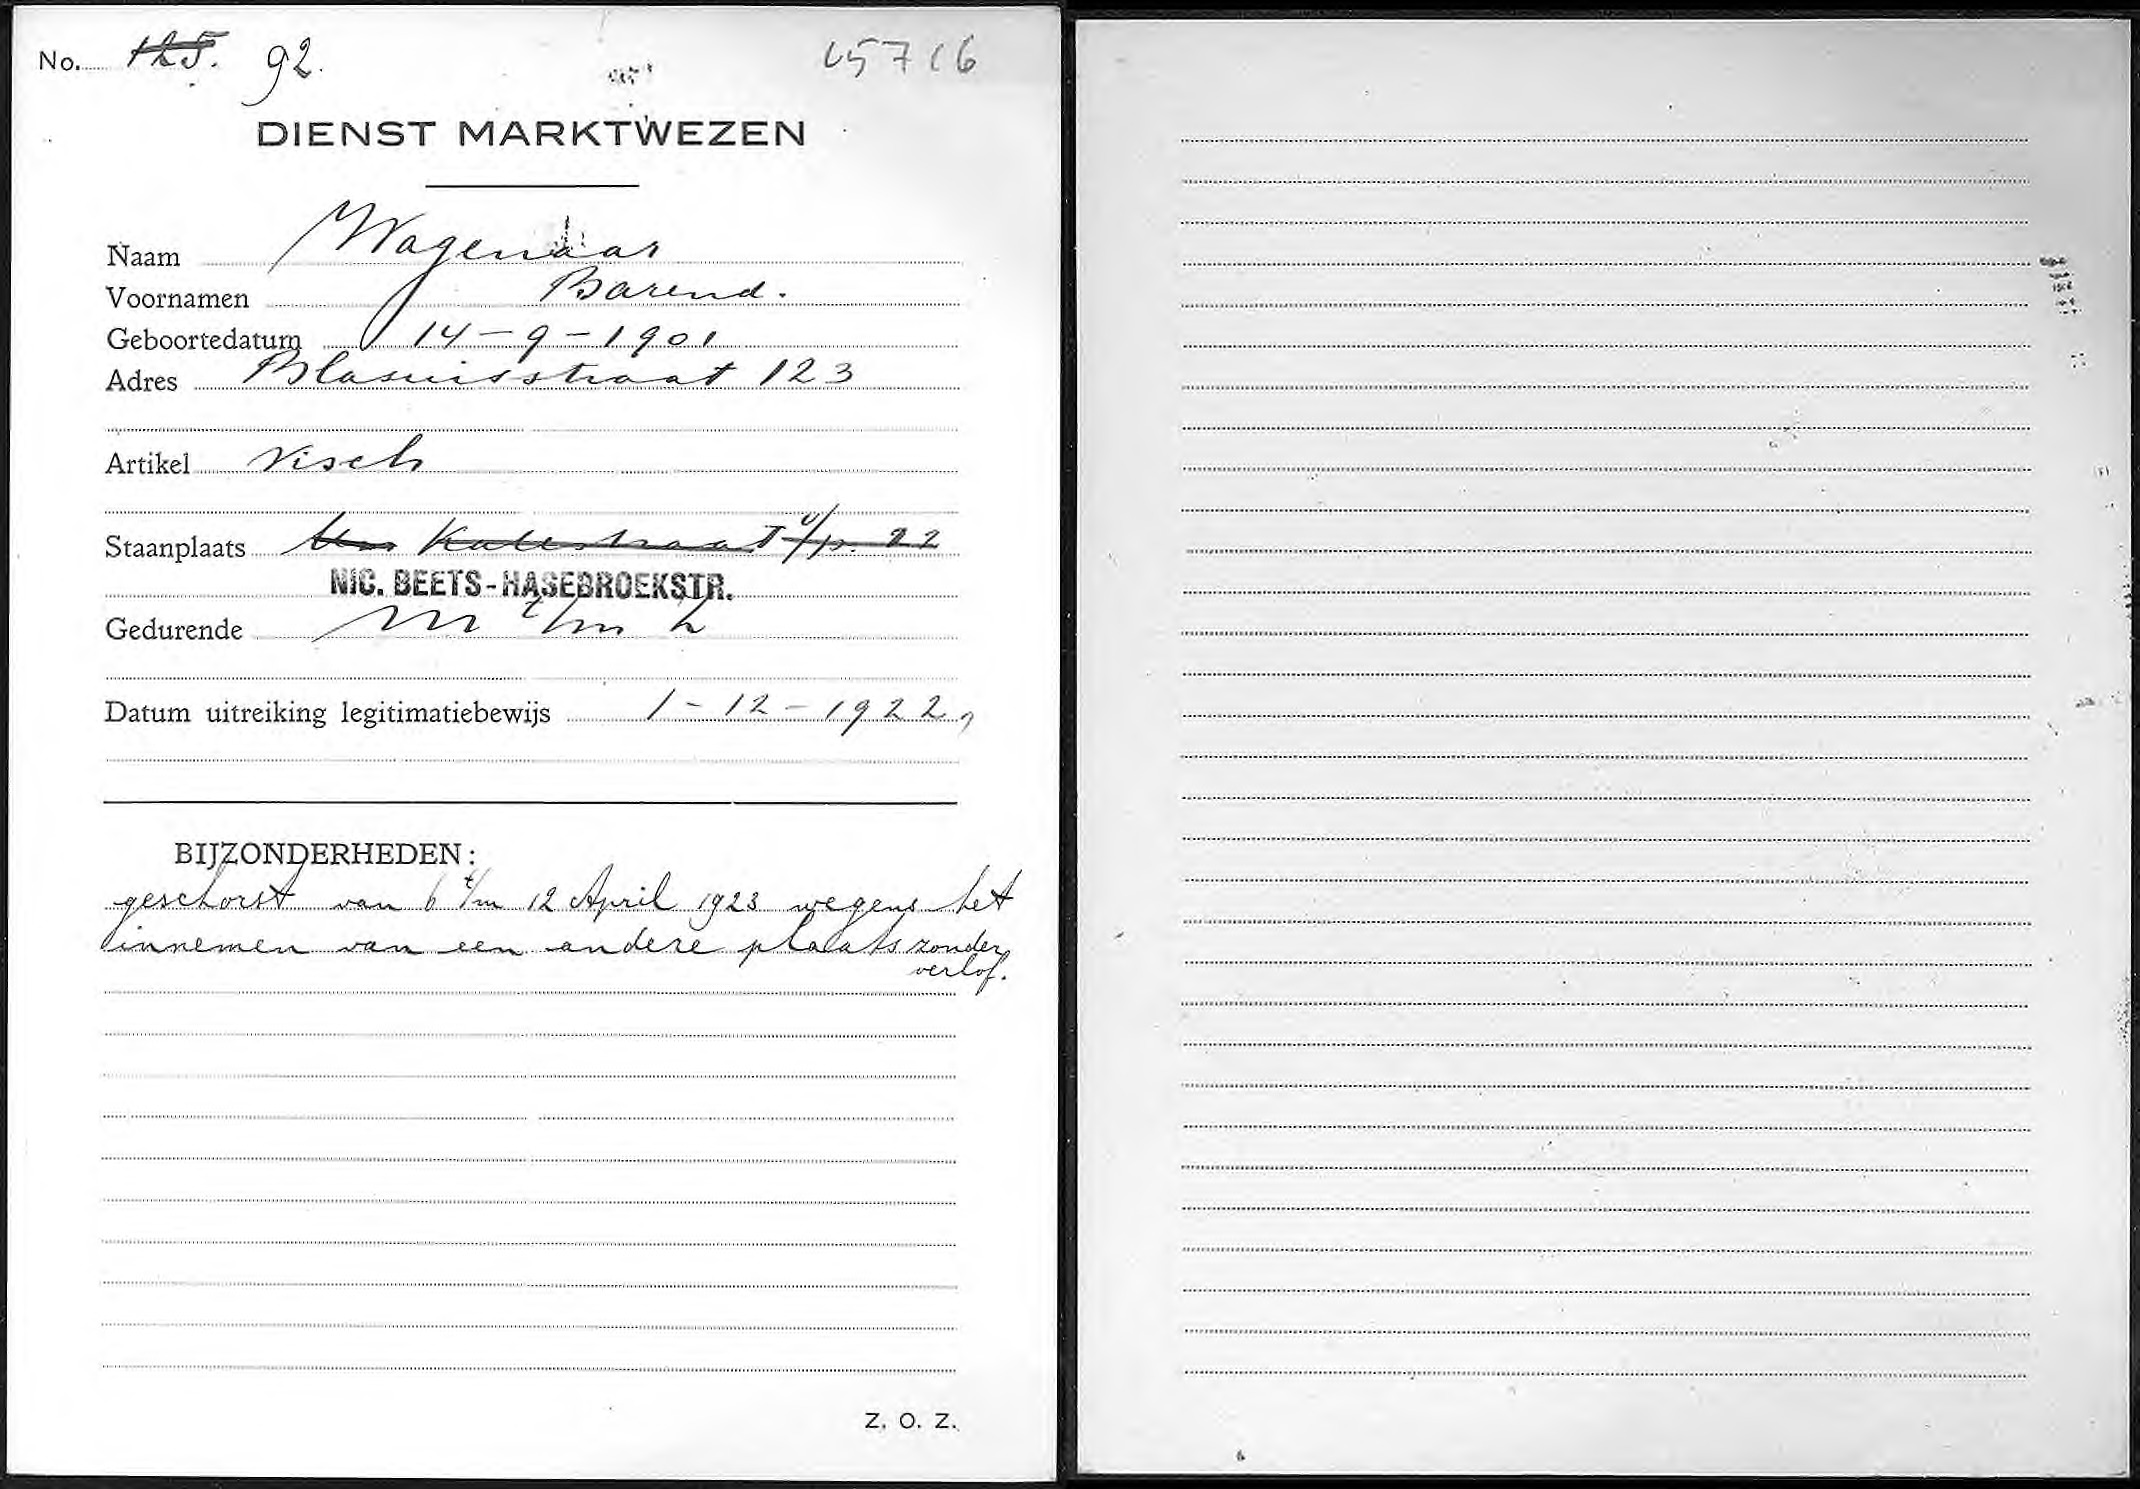 No. 125. 92.
DIENST MARKTWEZEN
Naam Wagenaar
Voornamen Barend.
Geboortedatum 14-9-1901
Adres Blasiusstraat 123
Artikel Visch
Staanplaats Katestraat v/p. 22
NIC. BEETS-HASEBROEKSTR.
Gedurende m t/m
Datum uitreiking legitimatiebewijs 1-12-1922
BIJZONDERHEDEN:
geschorst van 6 t/m 12 April 1923 wegens het
innemen van een andere plaats zonder
verlof.
Z. O. Z.